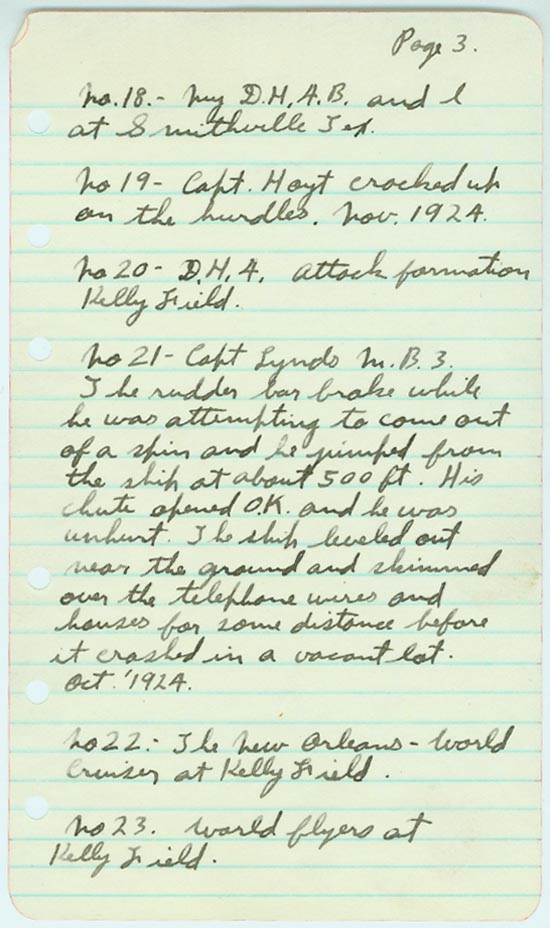 Page 3.
No. 18. - My D.H.4.B. and I
at Smithville Tex.
No 19 - Capt. Hoyt cracked up
on the hurdles. Nov. 1924.
No 20 - D.H.4. attack formation
Kelly Field.
No 21 - Capt Lynds M.B.3.
The rudder bar broke while
he was attempting to come out
of a spin and he jumped from
the ship at about 500 ft. His
chute opened O.K. and he was
unhurt. The ship leveled out
near the ground and skimmed
over the telephone wires and
houses for some distance before
it crashed in a vacant lot.
Oct. '1924.
No 22. - The New Orleans - World
Cruiser at Kelly Field.
No 23. World flyers at
Kelly Field.